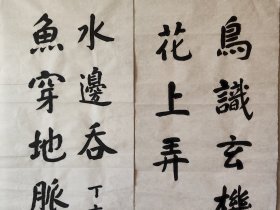 鳥識玄機
花上弄
魚穿地脈
水邊吞
丁